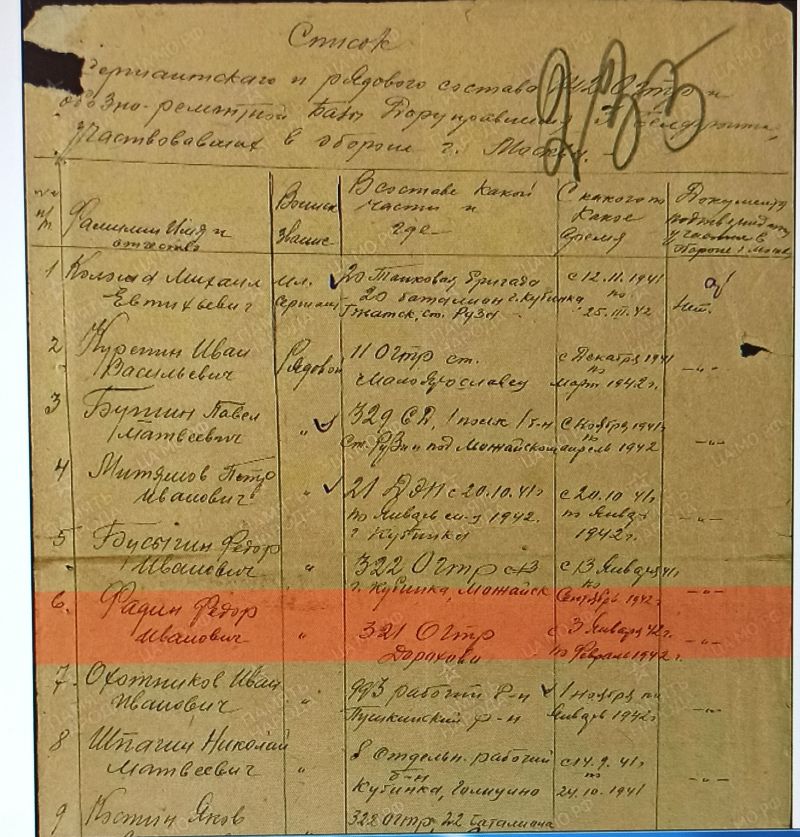 Список
Сержантского и рядового состава
обозно-ремонтной Базы
участвовавших в обороне г. Москвы.
235
№№ п/п
Фамилия Имя и отчество
Воинск звание
В составе какой части и где
С какого по какое время
Документы участия в обороне г. Москвы
1 Михаил Евтихьевич
мл. сержант
20 Танковая бригада
20 батальон г. Кубинка
Гжатск, ст. Руза
с 12.11.1941
по
25.III.42
Нет.
2 Иван
Васильевич
Рядовой
11 Огтр ст.
Малоярославец
с Декабря 1941
по
Март 1942 г.
-"-
3 Павел
Матвеевич
"
329 СД, 1 полк 1 б-н
ст. Руза и под Можайском
с Ноября 1941 г.
по
апрель 1942
-"-
4 Митяшов Петр
Иванович
"
21 с 20.10.41 г
по Январь 1942.
г Кубинка
с 20.10 41 г
по Январ
1942 г.
-"-
5 Бусыгин Федор
Иванович
"
322 Огтр с 13
г. Кубинка, Можайск
с 13 Января 41 г
по
Сентябрь 1942 г
-"-
6. Фадин Федор
Иванович
"
321 Огтр
Дорохово
с 3 Января 42 г.
по Февраль 1942 г.
-"-
7. Охотников Иван
Иванович
"
рабочий б-н
Пушкинский р-н
1 ноября по
Январь 1942 г
-"-
8 Шпагин Николай
Матвеевич
"
8 отдельн. рабочий
б-н
Кубинка, Голицино
с 14.9. 41 г
по
24.10.1941
-"-
9 Костин Яков
322 Огтр, 22 баталиона